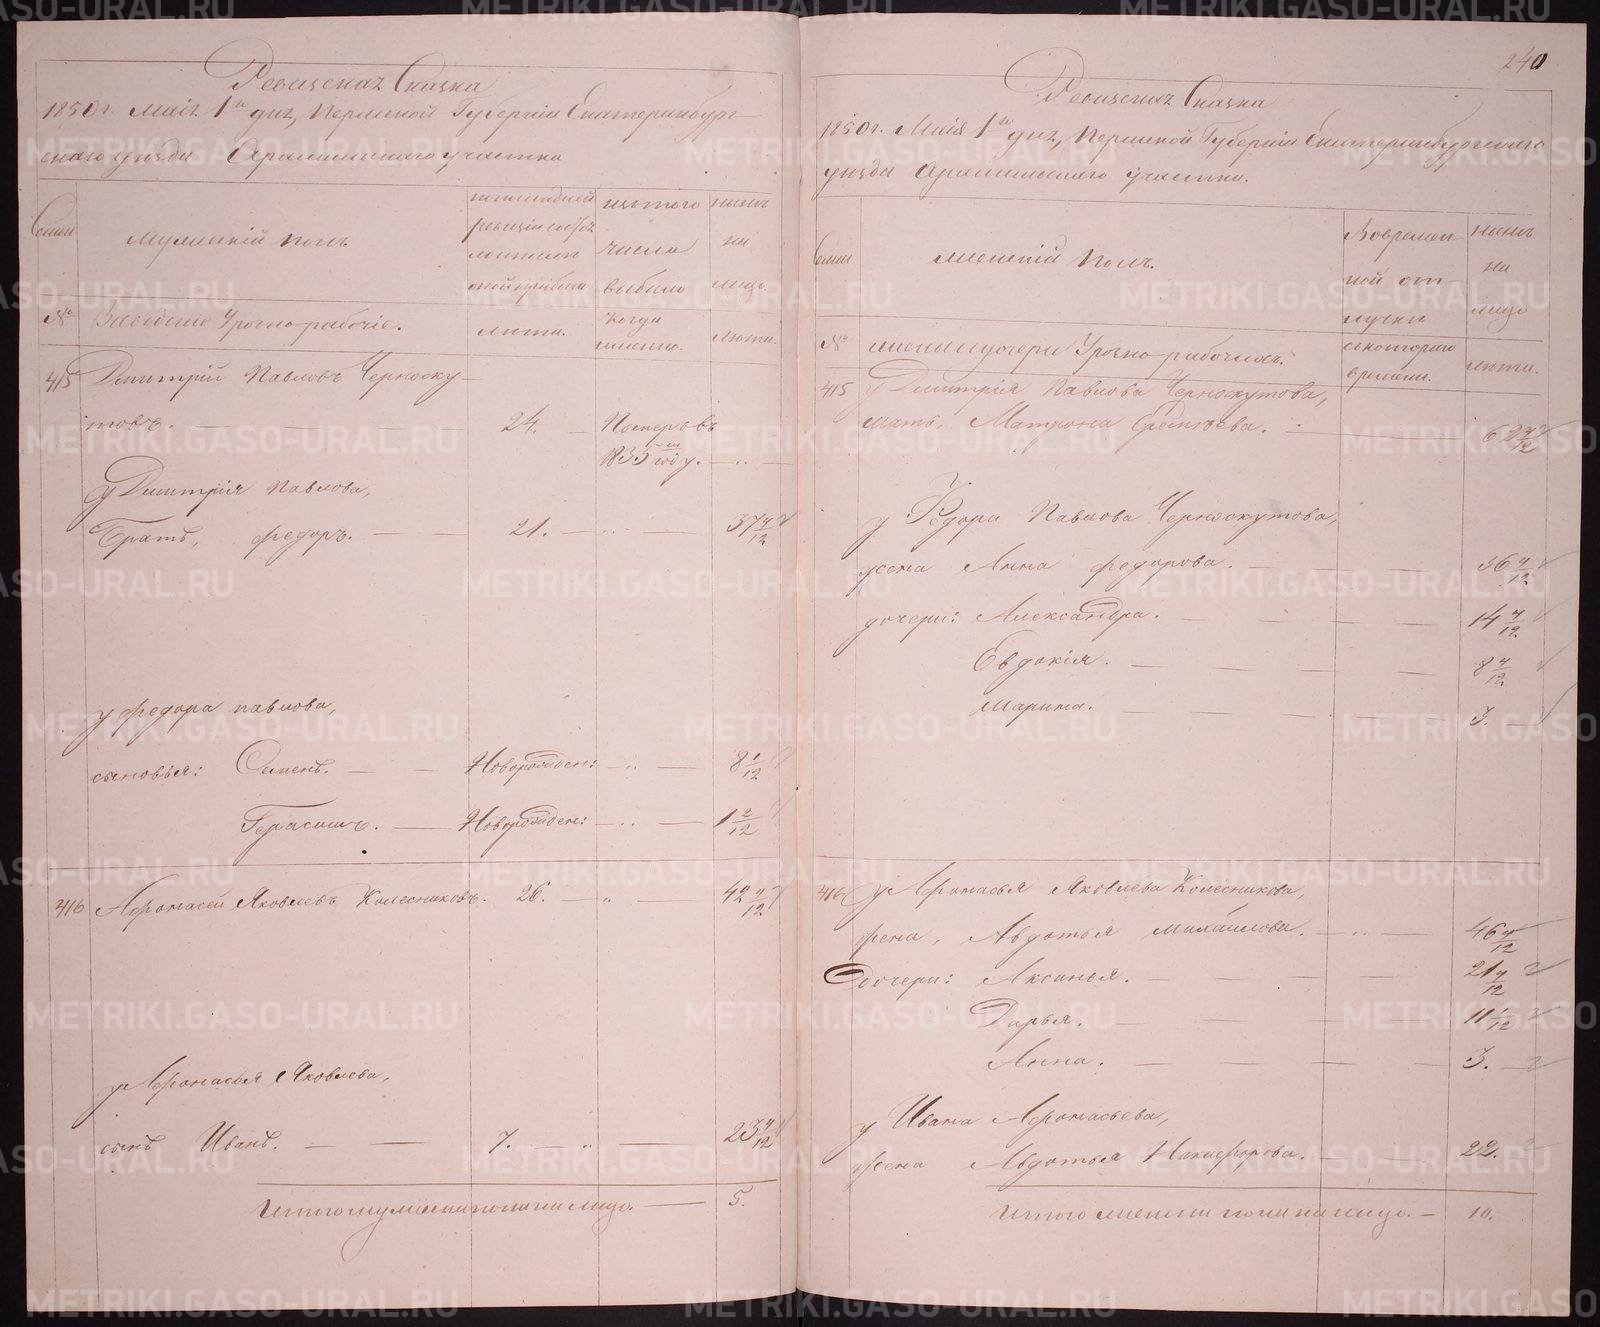 Ревизская Сказка
1850 г. Маія 1го дня, Пермской Губерніи Екатеринбург-
скаго уѣзда Арамильскаго участка
Семьи
Мужескій полъ.
По последней
ревизіи состо
яло и после
оной прибыло
изъ того
числа
выбыло
нынѣ
на
лицо.
№
Заводские Урочно-рабочіе.
лѣта.
Когда
именно.
лѣта.
415 Дмитрій Павловъ Черноску-
товъ. 24. Померъ въ
1835 м году.
у Дмитрія Павлова,
Братъ, Федоръ. 21. 37 4/12
у Федора Павлова,
сыновья: Семенъ. Новорожден: 8 1/12
Герасимъ. Новорожден: 1 2/12
416 Афонасей Яковлевъ Колесниковъ. 26. 42 4/12
у Афонасья Яковлева,
сынъ Иванъ. 7. 23 4/12
Итого мужеска пола на лицо. 5.
240
Ревизская Сказка
1850 г. Маія 1го дня, Пермской Губерніи Екатеринбургскаго
уѣзда Арамильскаго участка.
Семьи
Женскій Полъ.
Во времен-
ной от-
лучки
нынѣ
на
лицо
№
жены и дочери Урочно-рабочихъ.
съ котораго
времени.
лѣта.
415 у Дмитрія Павлова Черноскутова,
мать, Матрона 62 4/12
у Федора Павлова Черноскутова,
жена Анна Федорова. 36 4/12
дочери: Александра. 14 4/12
Евдокія. 8 4/12
Марина. 3.
416 у Афонасья Яковлева Колесникова,
жена, Авдотья Михайлова. 46 4/12
дочери: Аксинья. 21 4/12
Дарья. 11 1/12
Анна. 3.
у Ивана Афонасьева,
жена Авдотья Никифорова. 22.
Итого женска пола на лицо. 10.
METRIKI.GASO-URAL.RU